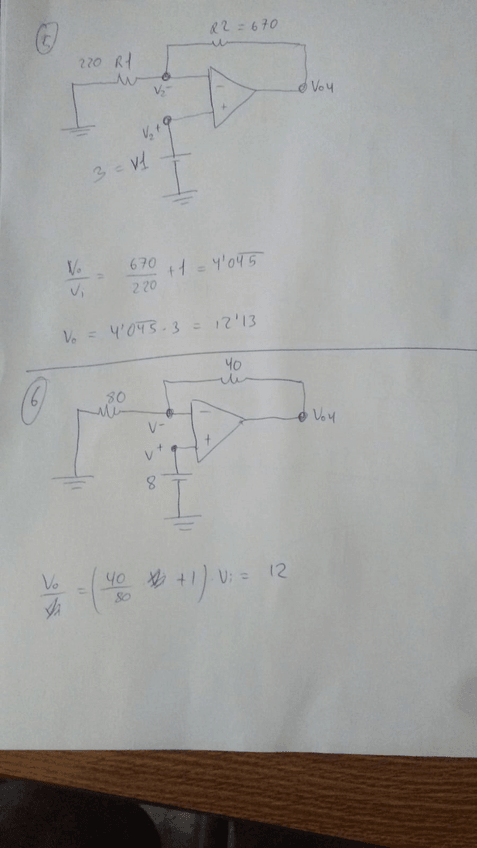 5
R2 = 670
220 R1
V2-
Vo4
V2+
3 = V1
- +
Vo/Vi = 670/220 + 1 = 4'045
Vo = 4'045 · 3 = 12'13
6
40
80
- +
V-
Vo4
V+
8
Vo = (40/80 + 1) · Vi = 12